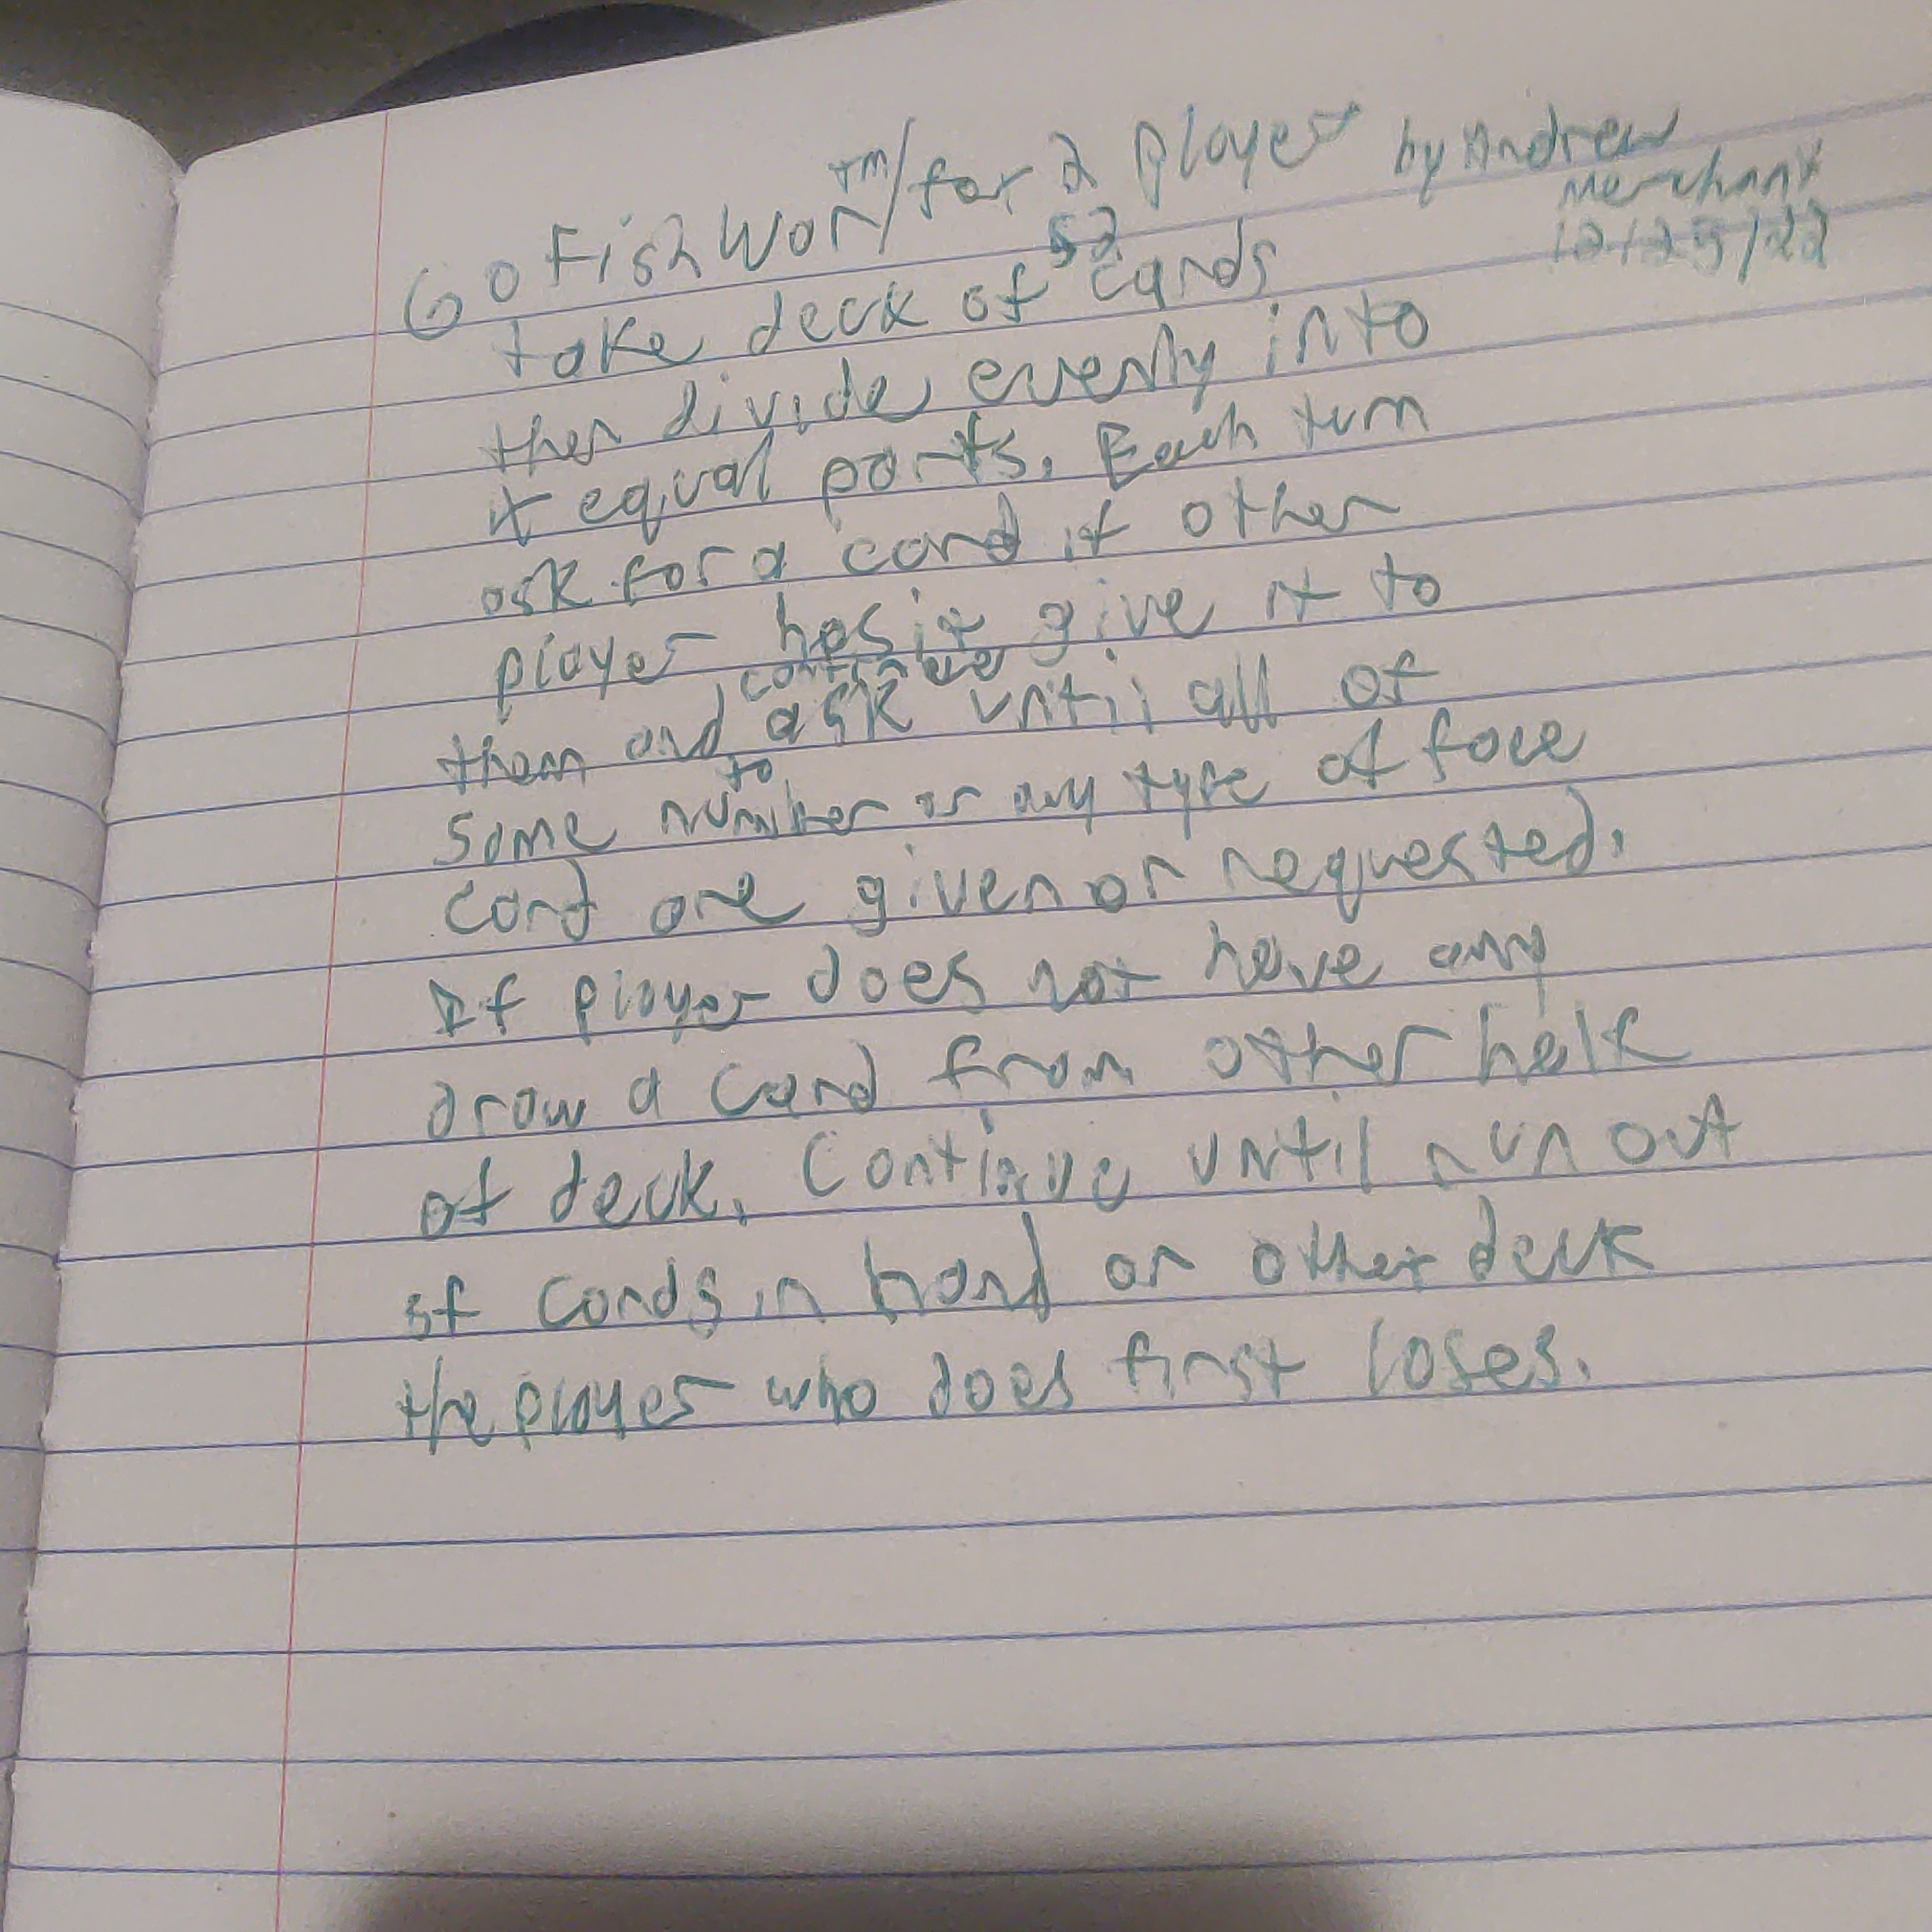 Go Fish War ™/for 2 player by Andrew
Merchant
12/25/22
take deck of 52 cards
then divide evenly into
equal parts. Each turn
ask for a card if other
player has it give it to
them and continue to ask until all of
same number or any type of face
card are given or requested.
If player does not have any
draw a card from other half
of deck. Continue until run out
of cards in hand or other deck
the player who does first loses.